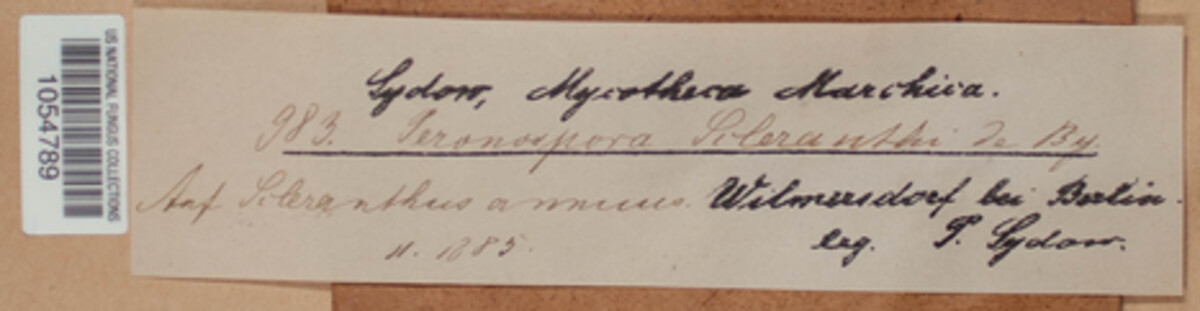 Sydow, Mycotheca Marchica.
983. Peronospora Scleranthi de By.
Auf Scleranthus annuus. Wilmersdorf bei Berlin.
11. 1885. leg. P. Sydow.
US NATIONAL FUNGUS COLLECTIONS
1054789